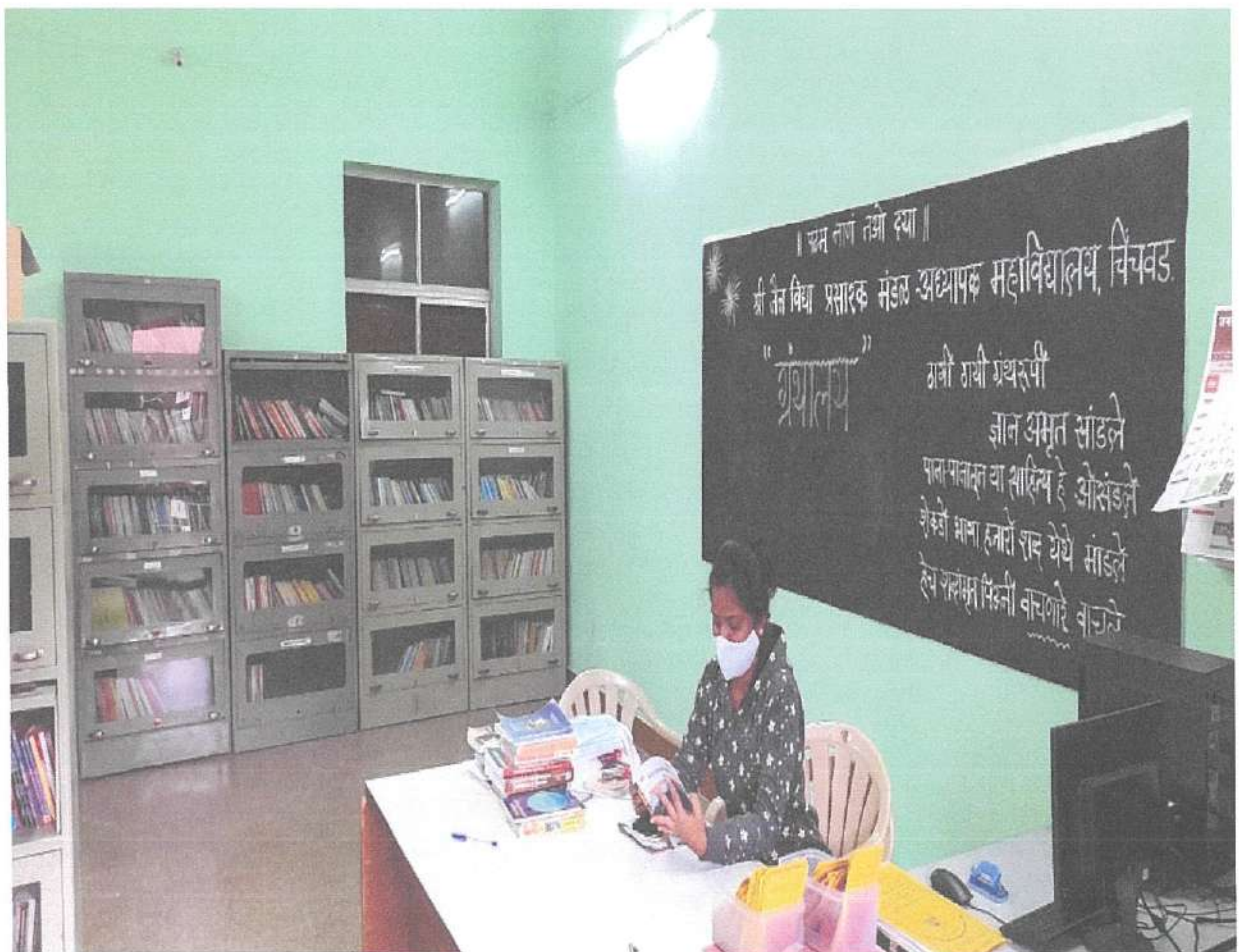 ॥ पढमं नाणं तओ दया ॥
श्री जैन विद्या प्रसारक मंडळ अध्यापक महाविद्यालय, चिंचवड.
"ग्रंथालय"
ठायी ठायी ग्रंथरूपी
ज्ञान अमृत सांडले
पाना-पानातून या साहित्य हे ओसंडले
शेकडो भाषा हजारो शब्द येथे मांडले
हेच शब्दामृत पिऊनी वाचणारे वाचले